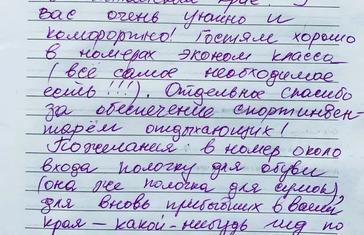 вас очень уютно и
комфортно! Гостям хорошо
в номерах эконом класса
(всё самое необходимое
есть!!!). Отдельное спасибо
за обеспечение спортинвен-
тарём отдыхающих!
Пожелания: в номер около
входа полочку для обуви
(она же полочка для сумок)
для вновь прибывших в ваши
края – какой-нибудь гид по